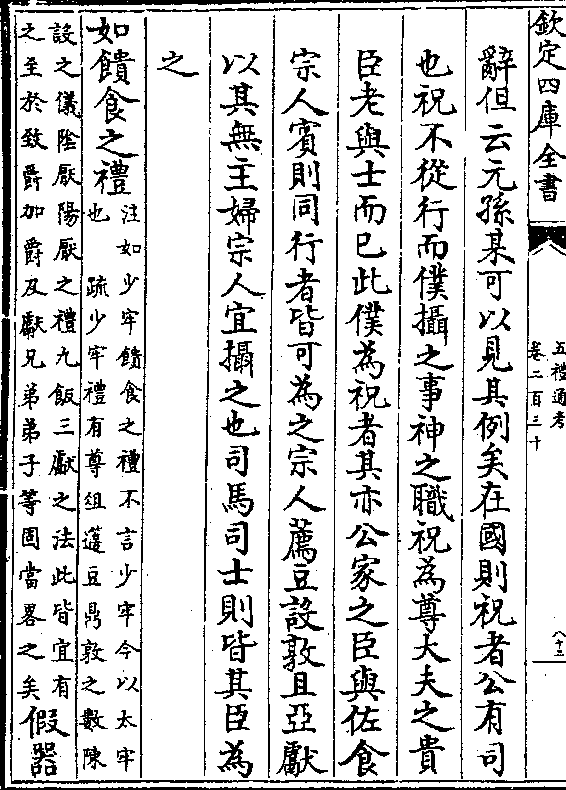 欽定四庫全書
五禮通考
卷二百三十
八十三
辭但云元孫某可以見其例矣在國則祝者公有司
也祝不從行而僕攝之事神之職祝為尊大夫之貴
臣老與士而已此僕為祝者其亦公家之臣與佐食
宗人賓則同行者皆可為之宗人薦豆設敦且亞獻
以其無主婦宗人宜攝之也司馬司士則皆其臣為
之
如饋食之禮
注如少牢饋食之禮不言少牢今以太牢
也 疏少牢禮有尊俎籩豆鼎敦之數陳
設之儀陰厭陽厭之禮九飯三獻之法此皆宜有
之至於致爵加爵及獻兄弟弟子等固當畧之矣
假器